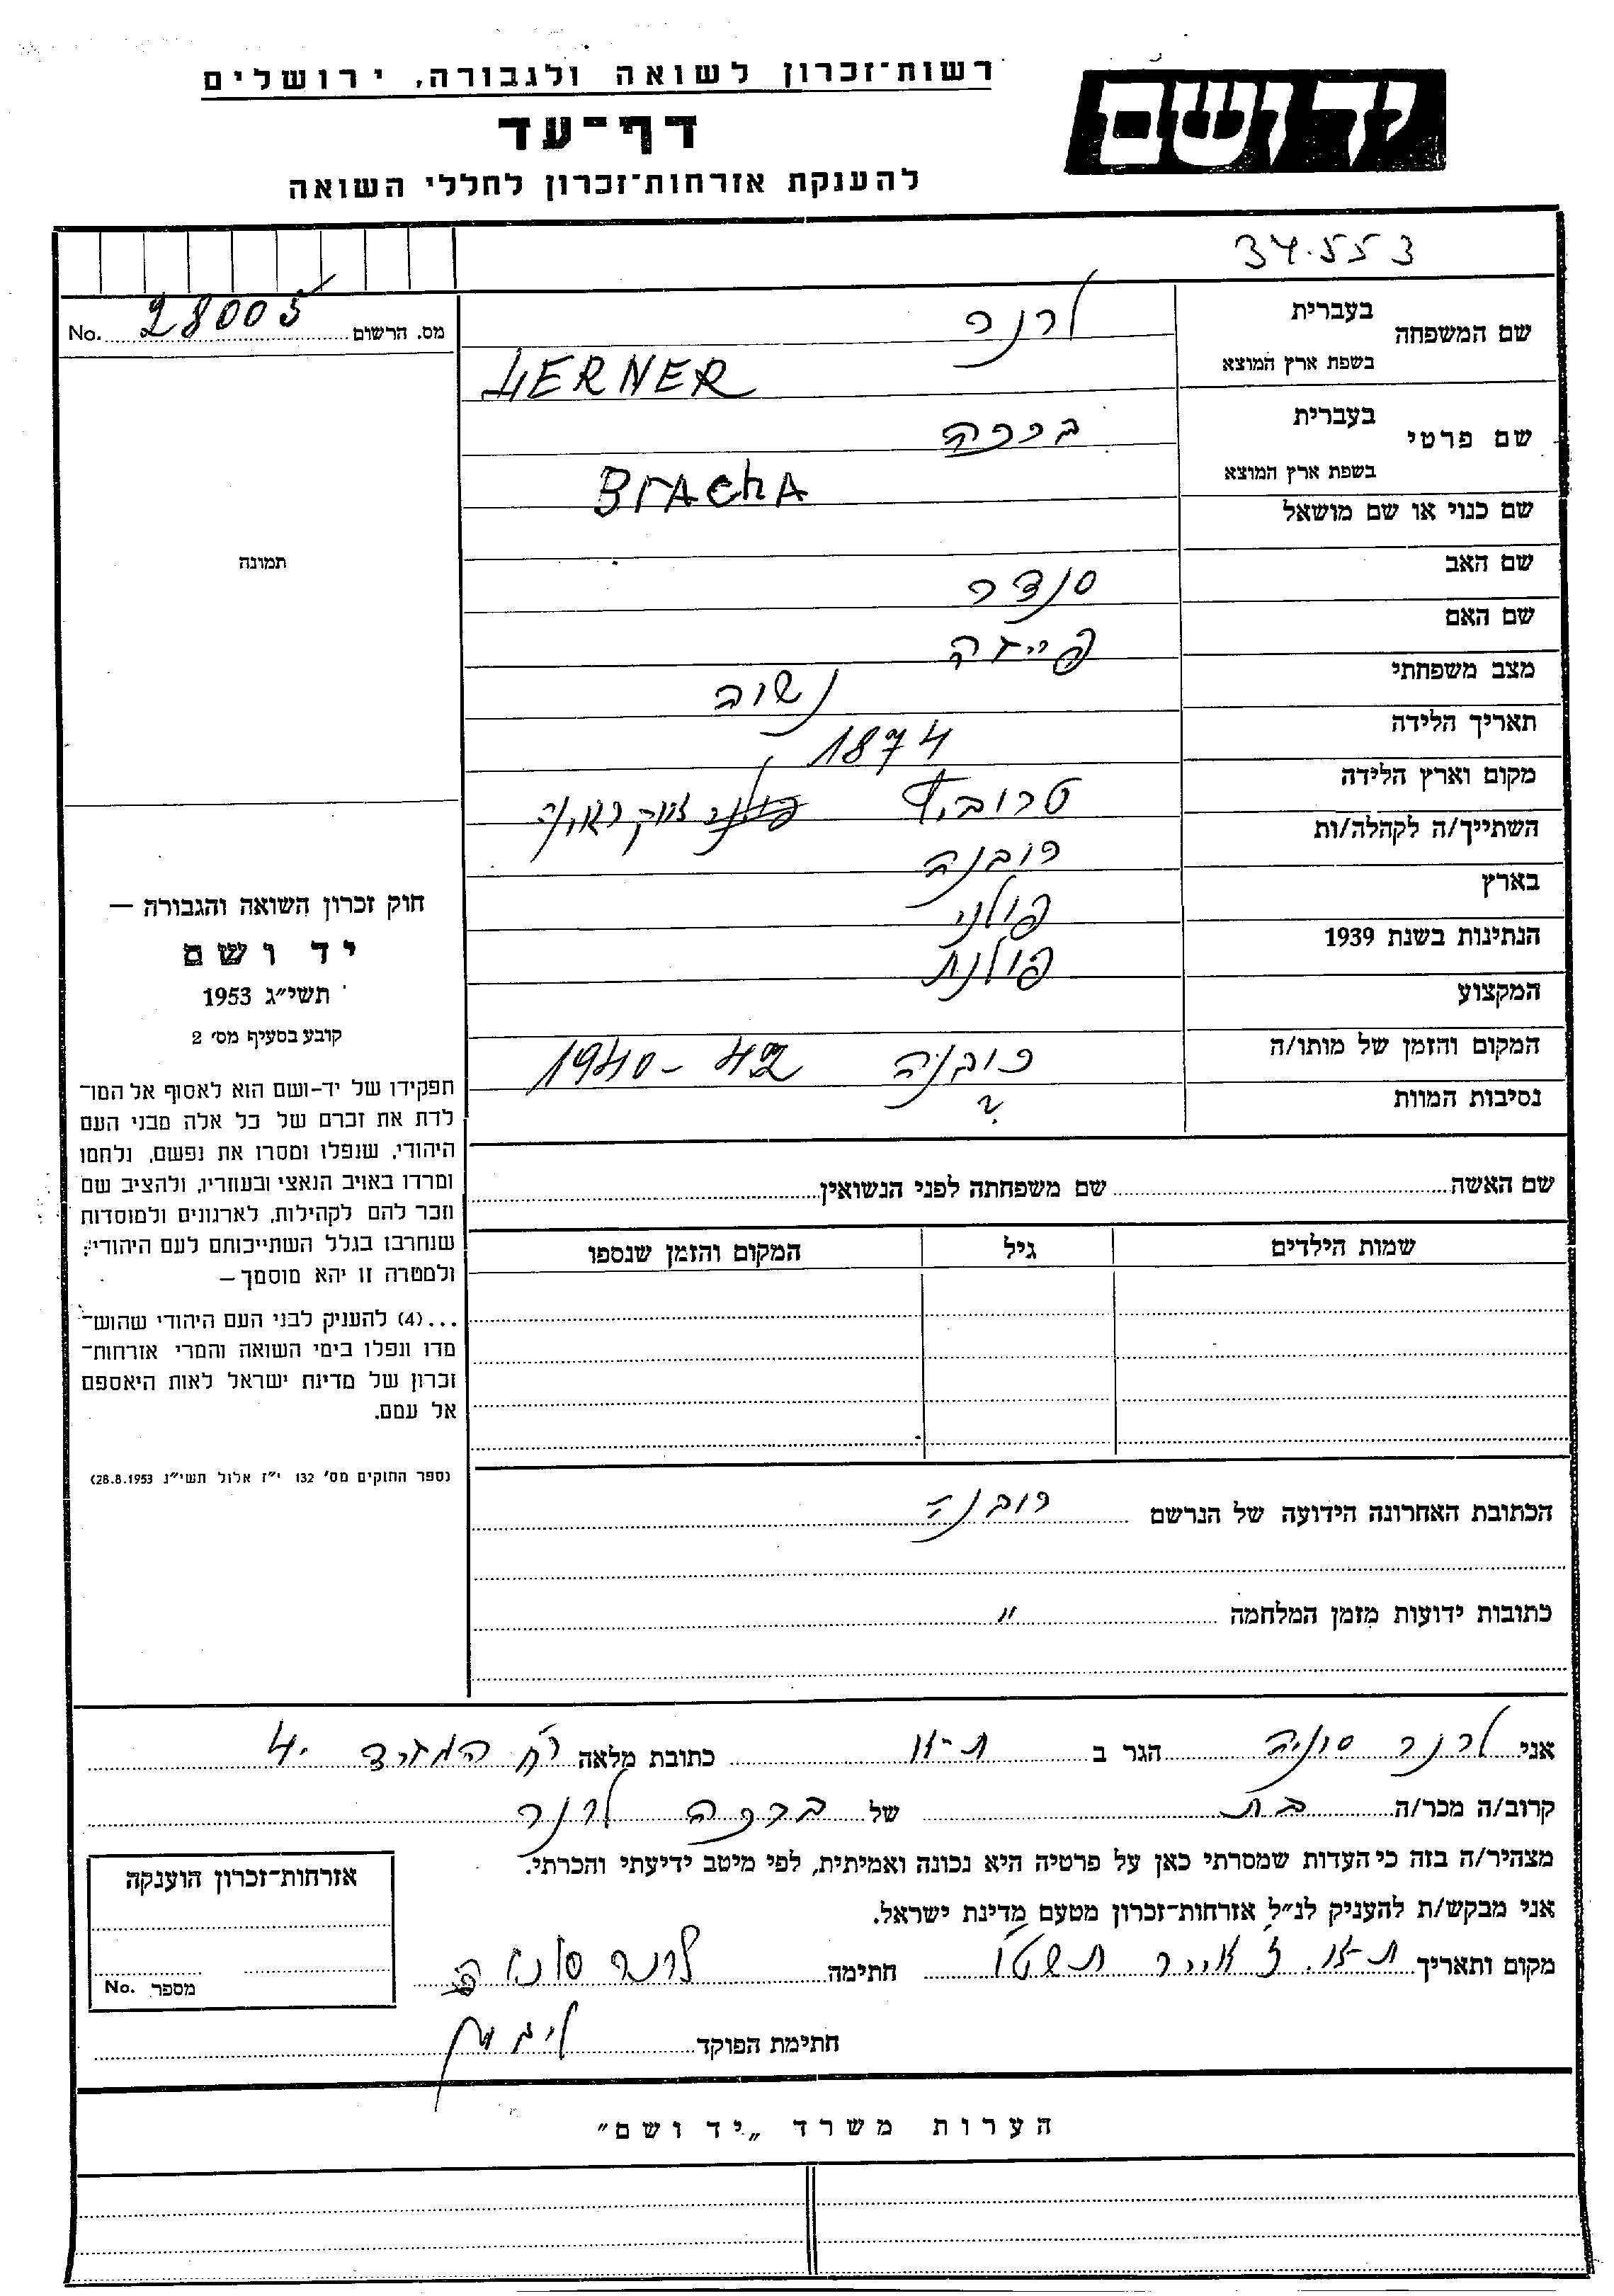 יד ושם
רשות־זכרון לשואה ולגבורה, ירושלים
דף־עד
להענקת אזרחות־זכרון לחללי השואה
34.553
מס. הרשום 28005 No.
תמונה
שם המשפחה
בעברית לרנר
בשפת ארץ המוצא LERNER
שם פרטי
בעברית ברכה
בשפת ארץ המוצא BrAchA
שם כנוי או שם מושאל
שם האב סנדר
שם האם פייגה
מצב משפחתי נשוי
תאריך הלידה 1874
מקום וארץ הלידה
השתייך/ה לקהלה/ות רובנה
בארץ פולני
הנתינות בשנת 1939 פולנית
המקצוע
המקום והזמן של מותו/ה רובנה 1940-42
נסיבות המוות ?
שם האשה שם משפחתה לפני הנשואין
שמות הילדים גיל המקום והזמן שנספו
הכתובת האחרונה הידועה של הנרשם רובנה
כתובות ידועות מזמן המלחמה "
חוק זכרון השואה והגבורה —
יד ושם
תשי"ג 1953
קובע בסעיף מס' 2
תפקידו של יד-ושם הוא לאסוף אל המו־
לדת את זכרם של כל אלה מבני העם
היהודי, שנפלו ומסרו את נפשם, נלחמו
ומרדו באויב הנאצי ובעוזריו, ולהציב שם
וזכר להם לקהילות, לארגונים ולמוסדות
שנחרבו בגלל השתייכותם לעם היהודי;
ולמטרה זו יהא מוסמך —
...(4) להעניק לבני העם היהודי שהוש־
מדו ונפלו בימי השואה והמרי אזרחות־
זכרון של מדינת ישראל לאות היאספם
אל עמם.
(ספר החוקים מס' 132 י"ז אלול תשי"ג 28.8.1953)
אני לרנר סוניה הגר ב ת-א כתובת מלאה רח 40
קרוב/ה מכר/ה בת של ברכה לרנר
מצהיר/ה בזה כי העדות שמסרתי כאן על פרטיה היא נכונה ואמיתית, לפי מיטב ידיעתי והכרתי.
אני מבקש/ת להעניק לנ"ל אזרחות־זכרון מטעם מדינת ישראל.
מקום ותאריך ת-א. אייר תשט"ו חתימה לרנר סוניה
חתימת הפוקד
אזרחות־זכרון הוענקה
מספר No.
הערות משרד „יד ושם"